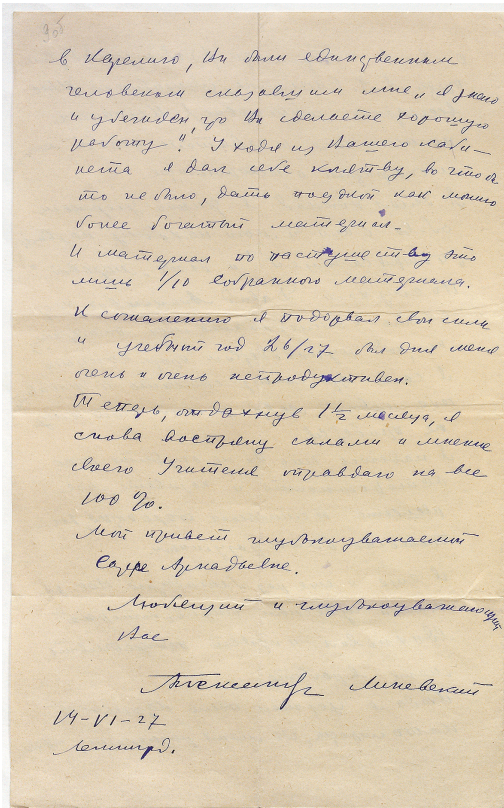 в Карелию, Вы были единственным
человеком сказавшим мне „я знаю
и убежден что Вы сделаете хорошую
работу". Уходя из Вашего каби-
нета я дал себе клятву, во что бы
то не было, дать поездкой как можно
более богатый материал.
И материал по пастушеству это
лишь 1/10 собранного материала.
К сожалению я подорвал свои силы
и учебный год 26/27 был для меня
очень и очень непродуктивен.
Теперь, отдохнув 1 1/2 месяца, я
снова воспряну силами и мнение
своего Учителя оправдаю на все
100 %.
Мой привет глубокоуважаемой
Аркадьевне.
Любящий и глубокоуважающий
Вас
Александр Линевский
14-VI-27
Ленингр.